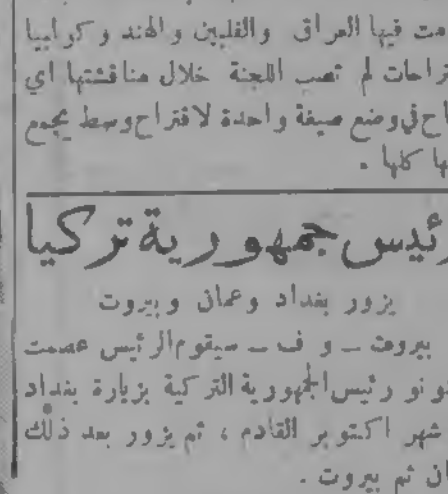 مت فيها العراق والفلبين والهند وكرابيا
راحات لم تصب اللجنة خلال مناقشتها اي
اح في وضع صيغة واحدة لاقتراح وسط يجمع
ها كلها .
رئيس جمهورية تركيا
يزور بغداد وعمان وبيروت
بيروت ــ و ف ــ سيقوم الرئيس عصمت
ونو رئيس الجمهورية التركية بزيارة بغداد
شهر اكتوبر القادم ، ثم يزور بعد ذلك
ان ثم بيروت .